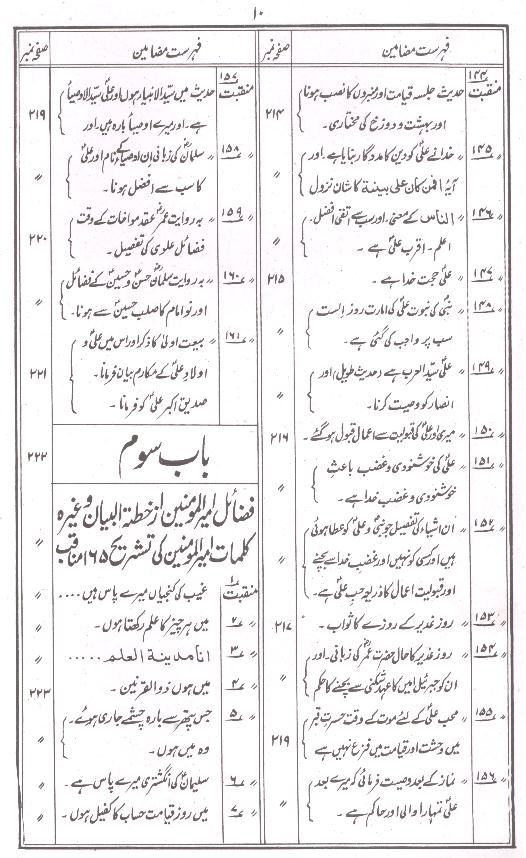 ۱۰
فہرست مضامین
صفحہ نمبر
منقبت ۱۴۴ حدیث جلسہ قیامت اور منبروں کا نصب ہونا
اور بہشت و دوزخ کی مختاری۔ ۲۱۴
۱۴۵ 〃 خدا نے علیؑ کو دین کا مددگار بنایا ہے۔ اور
آیۂ افمن کان علی بینۃ کا شان نزول 〃
۱۴۶ 〃 الناس کے معنی۔ اور سب سے اتقی افضل۔
اعلم۔ اقرب علیؑ ہے۔ 〃
۱۴۷ 〃 علیؑ حجت خدا ہے۔ ۲۱۵
۱۴۸ 〃 نبیؐ کی نبوت علیؑ کی امارت روز الست
سب پر واجب کی گئی ہے۔ 〃
۱۴۹ 〃 علیؑ سید العرب ہے (حدیث طویل) اور
انصار کو وصیت کرنا۔ 〃
۱۵۰ 〃 میری اور علیؑ کی قبولیت سے اعمال قبول ہوگئے۔ ۲۱۶
۱۵۱ 〃 علیؑ کی خوشنودی و غضب باعث
خوشنودی و غضب خدا ہے۔ 〃
۱۵۲ 〃 ان اشیاء کی تفصیل جو نبیؐ و علیؑ کو عطا ہوئی
ہیں اور کسی کو نہیں اور غضب خدا سے بچنے
اور قبولیت اعمال کا ذریعہ حب علیؑ ہے۔ 〃
۱۵۳ 〃 روز غدیر کے روزے کا ثواب۔ ۲۱۷
۱۵۴ 〃 روز غدیر کا حال حضرت عمرؓ کی زبانی۔ اور
ان کو جبرئیل امیں کا عہد شکنی سے بچنے کا حکم 〃
۱۵۵ 〃 محب علیؑ کے لئے موت کے وقت حسرت قبر
میں وحشت اور قیامت میں فزع نہیں ہے ۲۱۹
۱۵۶ 〃 نماز کے بعد وصیت فرمائی کہ میرے بعد
علیؑ تمہارا والی اور حاکم ہے۔ 〃
فہرست مضامین
صفحہ نمبر
منقبت ۱۵۷ حدیث میں سید الانبیاء ہوں اور علیؑ سید الاوصیاء
ہے۔ اور میرے اوصیاء بارہ ہیں۔ اور ۲۱۹
۱۵۸ 〃 سلمانؓ کی زبانی ان اوصیاء کے نام اور علیؑ
کا سب سے افضل ہونا۔ 〃
۱۵۹ 〃 بہ روایت عمرؓ عقد مواخات کے وقت
فضائل علوی کی تفصیل۔ ۲۲۰
۱۶۰ 〃 بہ روایت سلمانؓ حسنؑ و حسینؑ کے فضائل
اور نو امام کا صلب حسینؑ سے ہونا۔ 〃
۱۶۱ 〃 بیعت اولیٰ کا ذکر اور اس میں علیؑ و
اولاد علیؑ کے مکارم بیان فرمانا۔
صدیق اکبر علیؑ کو فرمانا۔ ۲۲۱
باب سوم ۲۲۲
فضائل امیر المومنین از خطبۃ البیان وغیرہ
کلمات امیر المومنین کی تشریح ۱۶۵ مناقب 〃
منقبت ۱ غیب کی کنجیاں میرے پاس ہیں .... 〃
۲ 〃 میں ہر چیز کا علم رکھتا ہوں۔ 〃
۳ 〃 انا مدینۃ العلم ..... 〃
۴ 〃 میں ہوں ذوالقرنین۔ ۲۲۳
۵ 〃 جس پتھر سے بارہ چشمے جاری ہوئے۔
وہ میں ہوں۔ 〃
۶ 〃 سلیمانؑ کی انگشتری میرے پاس ہے۔ 〃
۷ 〃 میں روز قیامت حساب کا کفیل ہوں۔ 〃